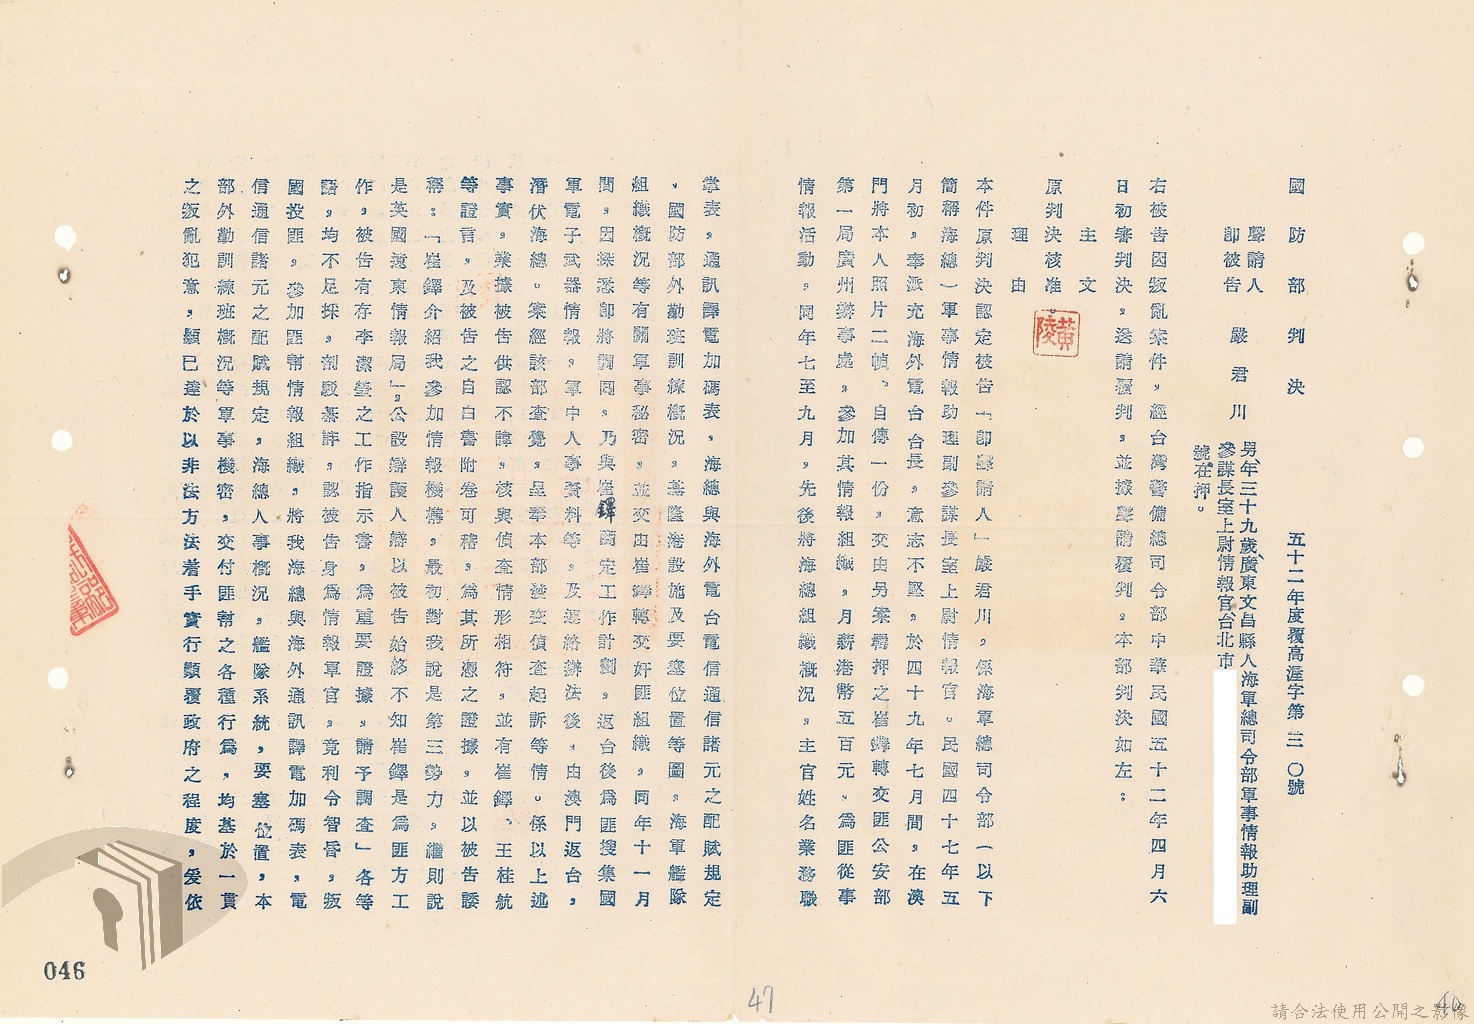 國防部判決
五十二年度覆高渥字第三〇號
聲請人
即被告
嚴君川
男、年三十九歲、廣東文昌縣人海軍總司令部軍事情報助理副
參謀長室上尉情報官台北市
號在押。
右被告因叛亂案件，經台灣警備總司令部中華民國五十二年四月六
日初審判決，送請覆判，並據聲請覆判，本部判決如左：
主文
原判決核准。
黃陵
理由
本件原判決認定被告「即聲請人」嚴君川，係海軍總司令部（以下
簡稱海總）軍事情報助理副參謀長室上尉情報官。民國四十七年五
月初，奉派充海外電台台長，意志不堅，於四十九年七月間，在澳
門將本人照片二幀、自傳一份，交由另案羈押之崔鐸轉交匪公安部
第一局廣州辦事處，參加其情報組織，月薪港幣五百元，為匪從事
情報活動，同年七至九月，先後將海總組織概況，主官姓名業務職
掌表，通訊譯電加碼表，海總與海外電台電信通信諸元之配賦規定
，國防部外勤班訓練概況，基隆港設施及要塞位置等圖，海軍艦隊
組織概況等有關軍事秘密，並交由崔鐸轉交奸匪組織，同年十一月
間，因探悉即將調回，乃與崔鐸商定工作計劃，返台後為匪搜集國
軍電子武器情報，軍中人事資料等，及連絡辦法後，由澳門返台，
潛伏海總。案經該部查覺，呈奉本部發交偵查起訴等情。係以上述
事實，業據被告供認不諱，核與偵查情形相符，並有崔鐸、王桂航
等證言，及被告之自白書附卷可稽，為其所憑之證據，並以被告諉
稱：「崔鐸介紹我參加情報機構，最初對我說是第三勢力，繼則說
是英國遠東情報局」。公設辯護人辯以被告始終不知崔鐸是為匪方工
作，被告有存李潔瑩之工作指示書，為重要證據，請予調查」各等
語，均不足採，剖駁綦詳，認被告身為情報軍官，竟利令智昏，叛
國投匪，參加匪幫情報組織，將我海總與海外通訊譯電加碼表，電
信通信諸元之配賦規定，海總人事概況，艦隊系統，要塞位置，本
部外勤訓練班概況等軍事機密，交付匪幫之各種行為，均基於一貫
之叛亂犯意，顯已達於以非法方法着手實行顛覆政府之程度，爰依
046
47
請合法使用公開之影像